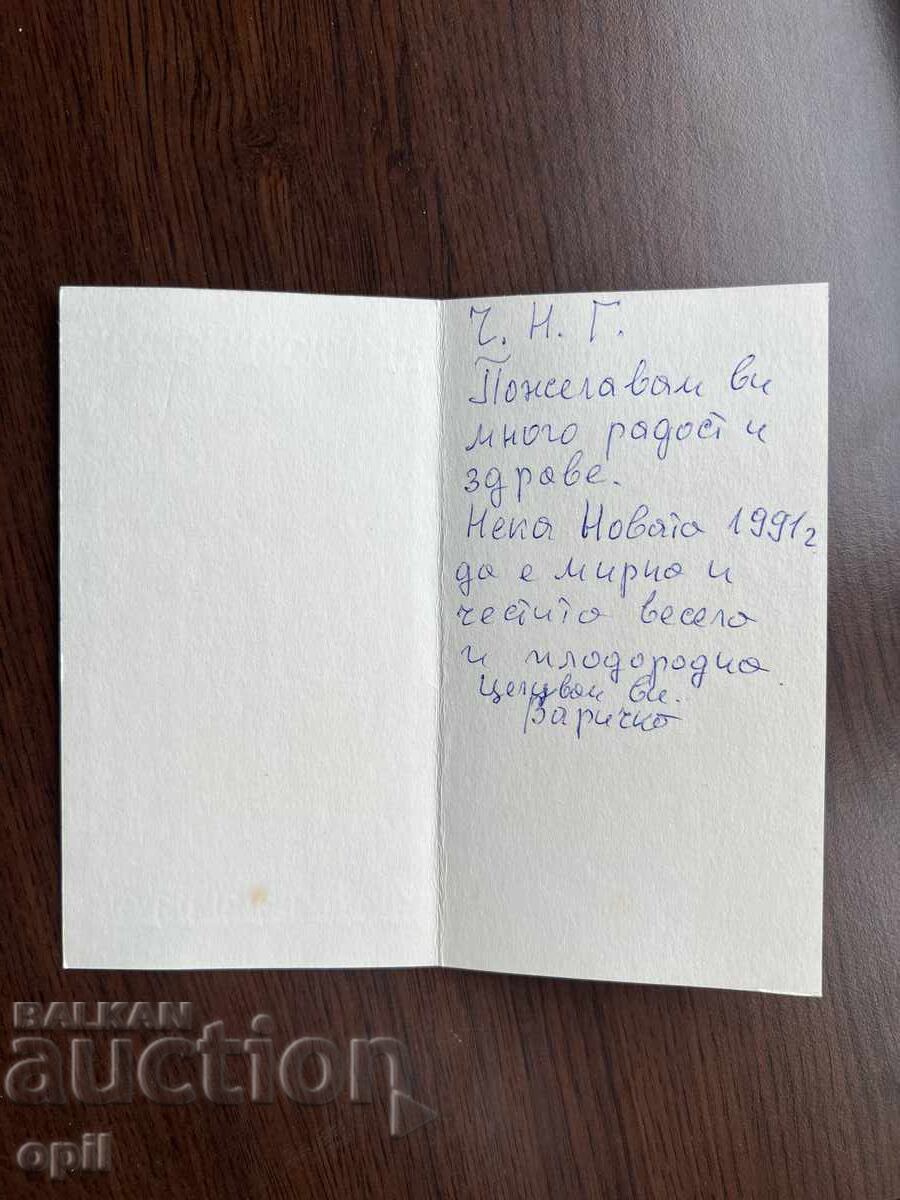 Ч. Н. Г.
Пожелавам ви
много радост и
здраве.
Нека Новата 1991г
да е мирна и
честита весела
и плодородна.
Целувам ви.
Варичка
BALKAN
auction
opil